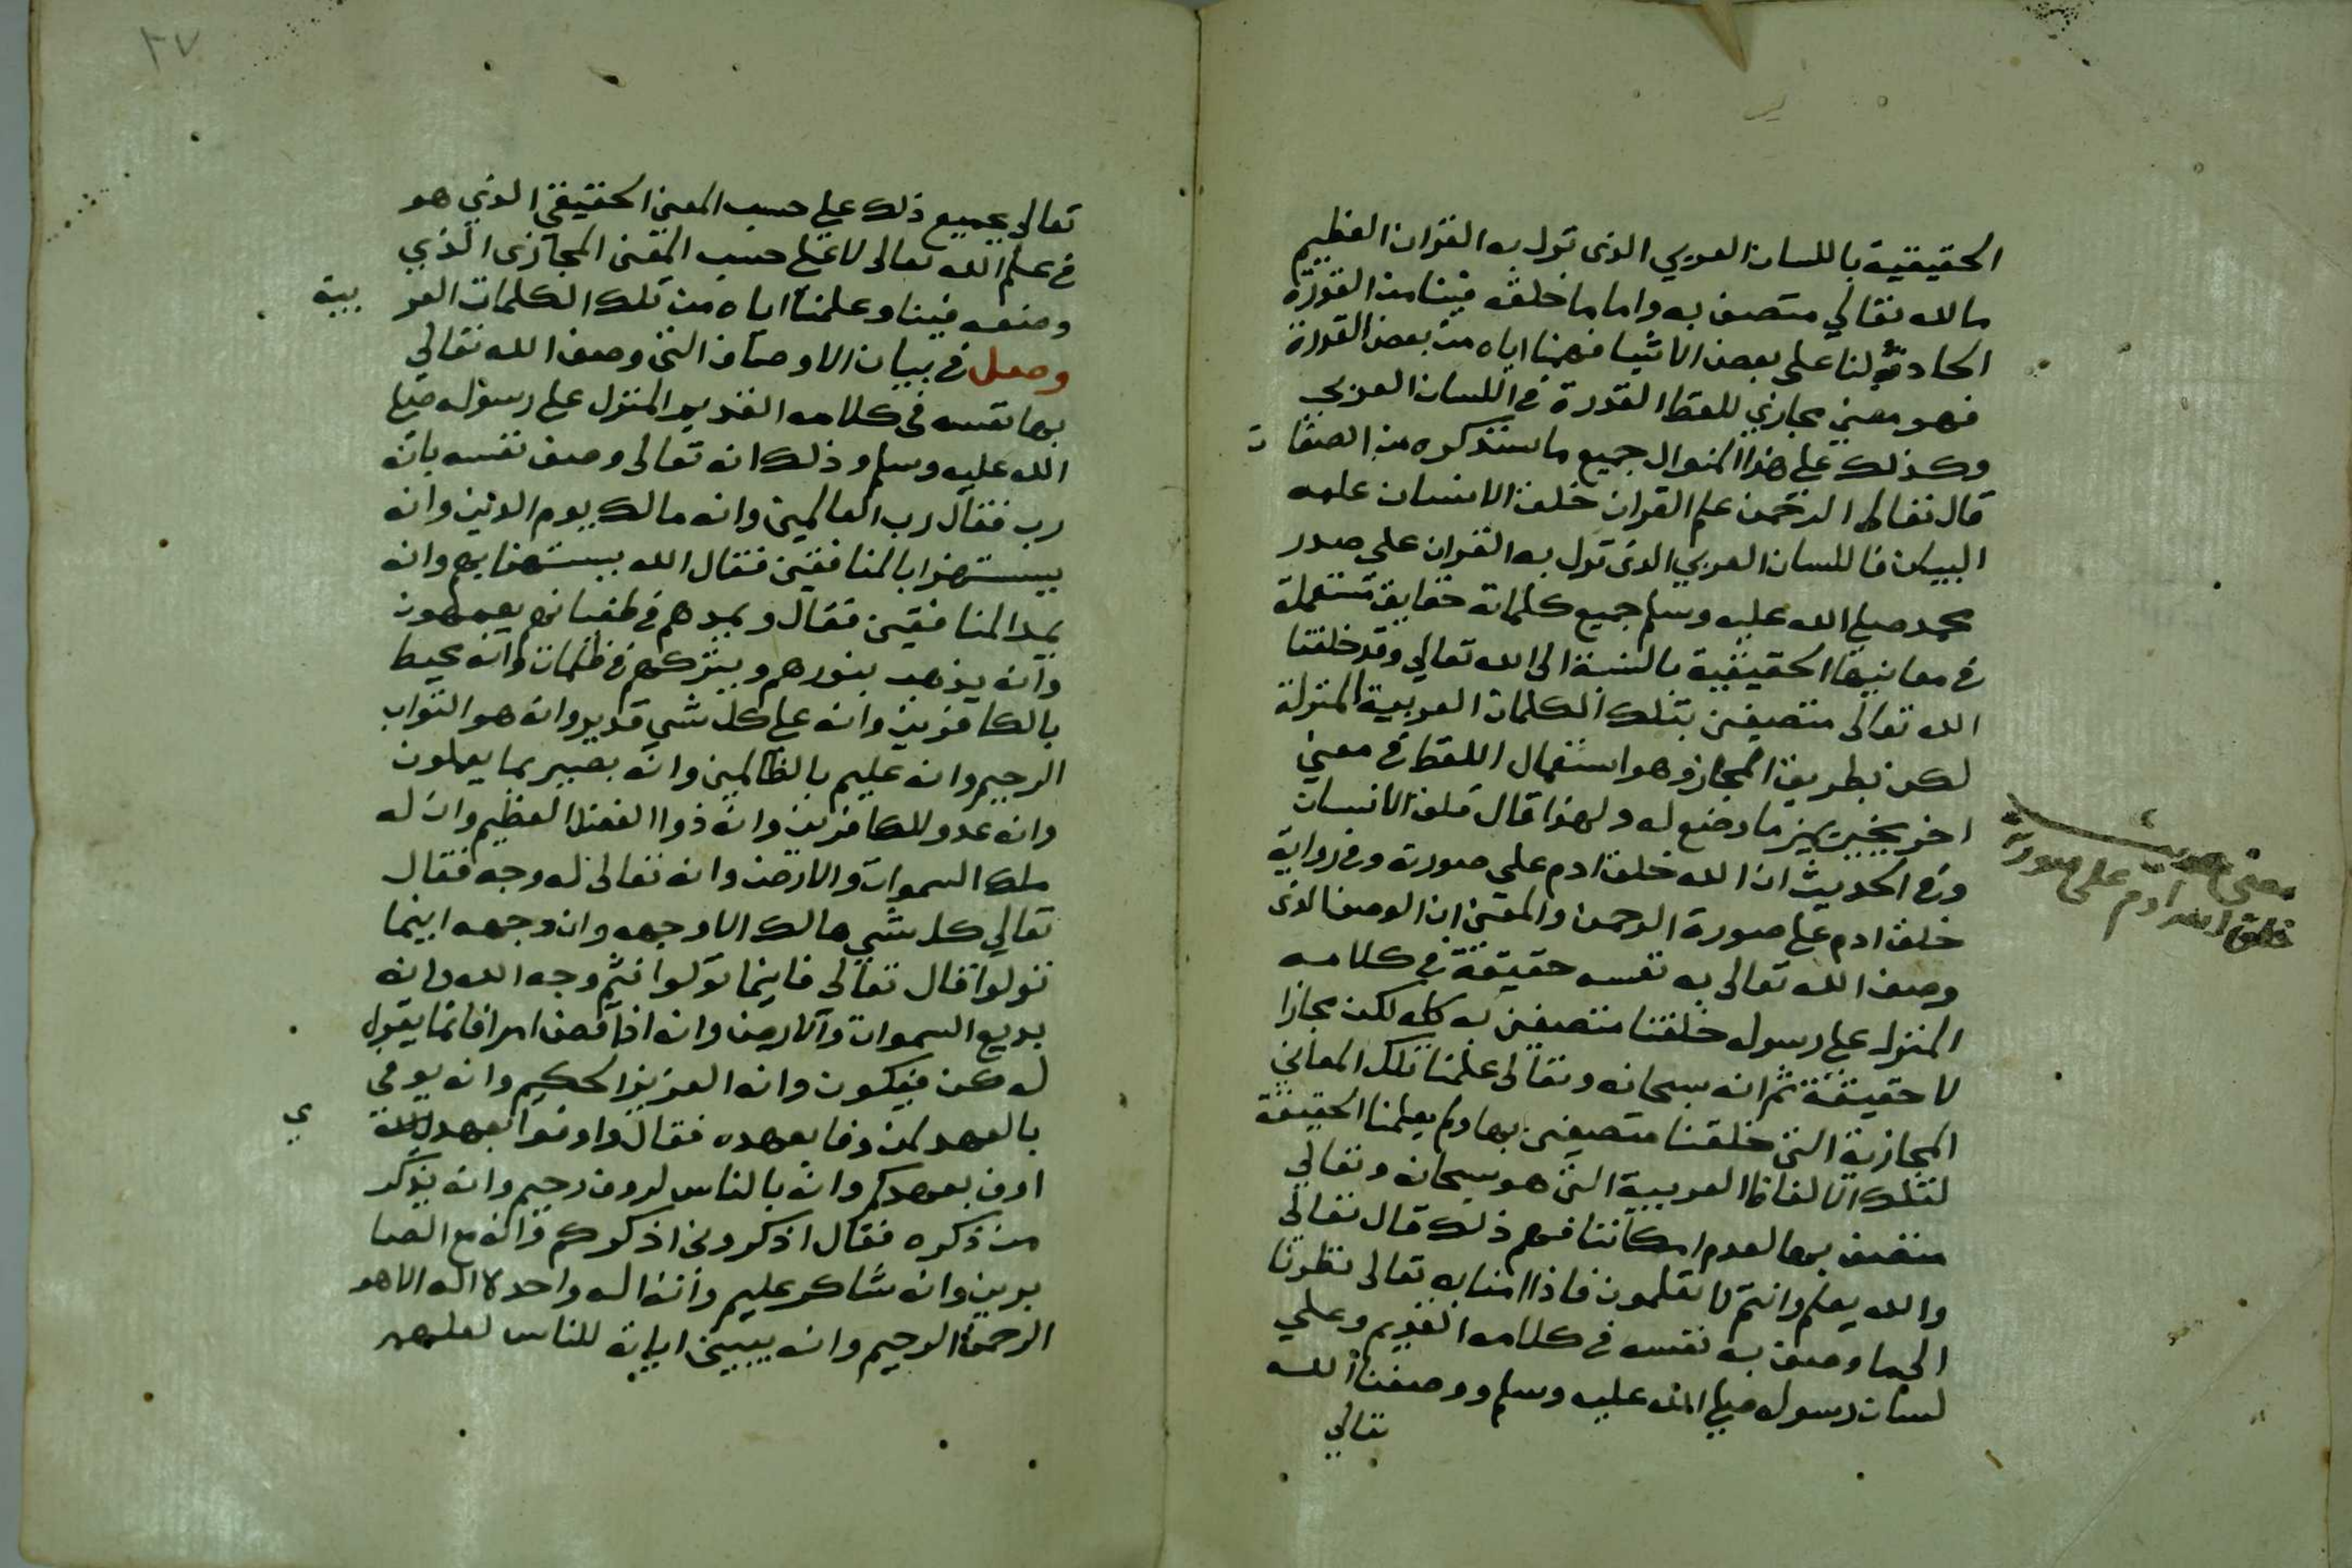 الحقيقية باللسان العربي الذى نزل به القران العظيم
ما الله تعالي متصف به واما ما خلقه فينا من القدرة
الحادثة لنا على بعض الاشيا فهمنا اياه من بعض القدرة
فهو معني مجازي للفظ القدرة في اللسان العربي
وكذلك علي هذا المنوال جميع ما سنذكره من الصفات
قال تعالى الرحمن علم القران خلق الانسان علمه
البيان فاللسان العربي الذى نزل به القران علي صدر
محمد صلي الله عليه وسلم جميع كلماته حقايق مستعملة
في معانيها الحقيقية بالنسبة الى الله تعالي وقد خلقنا
الله تعالى متصفين بتلك الكلمات العربية المنزلة
لكن بطريق المجاز وهو استعمال اللفظ في معني
اخر غير ما وضع له ولهذا قال خلق الانسان
وفي الحديث ان الله خلق ادم علي صورته وفي رواية
خلق ادم علي صورة الرحمن والمعنى ان الوصف الذى
وصف الله تعالى به نفسه حقيقة في كلامه
المنزل علي رسوله خلقنا متصفين به كله لكن مجازا
لا حقيقة ثم انه سبحانه وتعالى علمنا تلك المعاني
المجازية التي خلقنا متصفين بها ولم يعلمنا الحقيقة
لتلك الالفاظ العربية التي هو سبحانه وتعالي
متصف بها لعدم امكاننا فهم ذلك قال تعالي
والله يعلم وانتم لا تعلمون فاذا امنا به تعالى نظرنا
الي ما وصف به نفسه في كلامه القديم وعلي
لسان رسوله صلي الله عليه وسلم ووصفنا الله
تعالي
معنى حديث
خلق الله ادم على صورته
٢٧
تعالى بجميع ذلك علي حسب المعني الحقيقي الذي هو
في علم الله تعالى لا علي حسب المعنى المجازى الذي
وضعه فينا وعلمنا اياه من تلك الكلمات العربية
وصل في بيان الاوصاف التي وصف الله تعالي
بها نفسه في كلامه القديم المنزل علي رسوله صلي
الله عليه وسلم وذلك انه تعالى وصف نفسه بانه
رب فقال رب العالمين وانه مالك يوم الدين وانه
يستهزا بالمنافقين فقال الله يستهزا بهم وانه
يمد المنافقين فقال ويمدهم في طغيانهم يعمهون
وانه يذهب بنورهم ويتركهم في ظلمات وانه محيط
بالكافرين وانه علي كل شي قدير وانه هو التواب
الرحيم وانه عليم بالظالمين وانه بصير بما يعملون
وانه عدو للكافرين وانه ذوا الفضل العظيم وان له
ملك السموات والارض وانه تعالى له وجه فقال
تعالي كل شي هالك الا وجهه وان وجهه اينما
تولوا قال تعالى فاينما تولوا فثم وجه الله وانه
بديع السموات والارض وانه اذا قضى امرا فانما يقول
له كن فيكون وانه العزيز الحكيم وانه يوفي
بالعهد لمن وفا بعهده فقال واوفوا بعهدي
اوف بعهدكم وانه بالناس لروف رحيم وانه يذكر
من ذكره فقال اذكروني اذكركم وانه مع الصا
برين وانه شاكر عليم وانه اله واحد لا اله الا هو
الرحمن الرحيم وانه يبين اياته للناس لعلهم